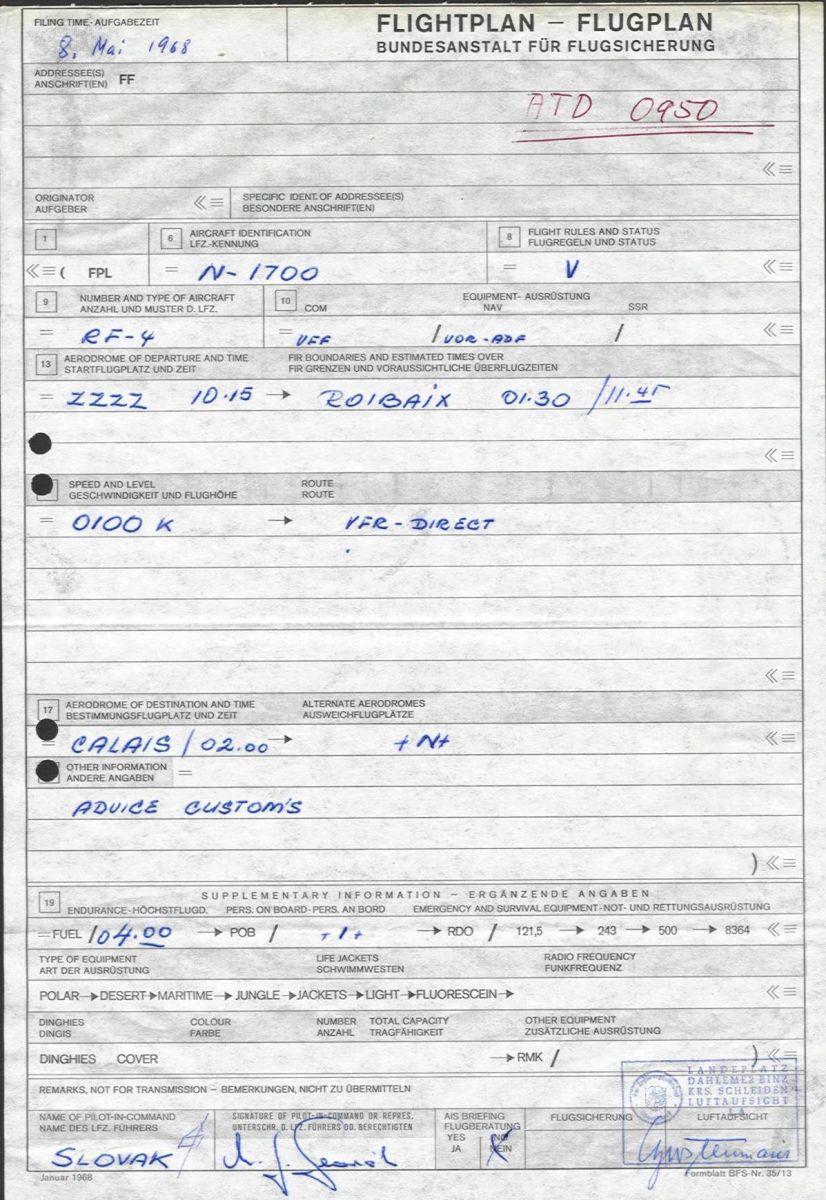 FILING TIME - AUFGABEZEIT
8. Mai 1968
FLIGHTPLAN – FLUGPLAN
BUNDESANSTALT FÜR FLUGSICHERUNG
ADDRESSEE(S)
ANSCHRIFT(EN) FF
ATD 0950
≪≡
ORIGINATOR
AUFGEBER
≪≡
SPECIFIC IDENT. OF ADDRESSEE(S)
BESONDERE ANSCHRIFT(EN)
1
6 AIRCRAFT IDENTIFICATION
LFZ.-KENNUNG
8 FLIGHT RULES AND STATUS
FLUGREGELN UND STATUS
≪≡ ( FPL = N-1700 = V ≪≡
9 NUMBER AND TYPE OF AIRCRAFT
ANZAHL UND MUSTER D. LFZ.
10 EQUIPMENT - AUSRÜSTUNG
COM NAV SSR
= RF-4 = VFF / VOR-ADF / ≪≡
13 AERODROME OF DEPARTURE AND TIME
STARTFLUGPLATZ UND ZEIT
FIR BOUNDARIES AND ESTIMATED TIMES OVER
FIR GRENZEN UND VORAUSSICHTLICHE ÜBERFLUGZEITEN
= ZZZZ 10.15 → ROIBAIX 01.30 / 11.45
≪≡
SPEED AND LEVEL
GESCHWINDIGKEIT UND FLUGHÖHE
ROUTE
ROUTE
= 0100 K → VFR-DIRECT
≪≡
17 AERODROME OF DESTINATION AND TIME
BESTIMMUNGSFLUGPLATZ UND ZEIT
ALTERNATE AERODROMES
AUSWEICHFLUGPLÄTZE
= CALAIS / 02.00 → +N+ ≪≡
OTHER INFORMATION =
ANDERE ANGABEN
ADVICE CUSTOM'S
) ≪≡
19 SUPPLEMENTARY INFORMATION – ERGÄNZENDE ANGABEN
ENDURANCE-HÖCHSTFLUGD. PERS. ON BOARD - PERS. AN BORD EMERGENCY AND SURVIVAL EQUIPMENT - NOT- UND RETTUNGSAUSRÜSTUNG
= FUEL / 04.00 → POB / +1+ → RDO / 121,5 → 243 → 500 → 8364 ≪≡
TYPE OF EQUIPMENT
ART DER AUSRÜSTUNG
LIFE JACKETS
SCHWIMMWESTEN
RADIO FREQUENCY
FUNKFREQUENZ
POLAR → DESERT → MARITIME → JUNGLE → JACKETS → LIGHT → FLUORESCEIN → ≪≡
DINGHIES
DINGIS
COLOUR
FARBE
NUMBER
ANZAHL
TOTAL CAPACITY
TRAGFÄHIGKEIT
OTHER EQUIPMENT
ZUSÄTZLICHE AUSRÜSTUNG
DINGHIES COVER → RMK / ) ≪≡
REMARKS, NOT FOR TRANSMISSION – BEMERKUNGEN, NICHT ZU ÜBERMITTELN
LANDEPLATZ
DAHLEMER BINZ
KRS. SCHLEIDEN
LUFTAUFSICHT
NAME OF PILOT-IN-COMMAND
NAME DES LFZ. FÜHRERS
SLOVAK
SIGNATURE OF PILOT-IN-COMMAND OR REPRES.
UNTERSCHR. D. LFZ. FÜHRERS OD. BERECHTIGTEN
AIS BRIEFING
FLUGBERATUNG
YES NO
JA NEIN
FLUGSICHERUNG
LUFTAUFSICHT
Januar 1968
Formblatt BFS-Nr. 35/13